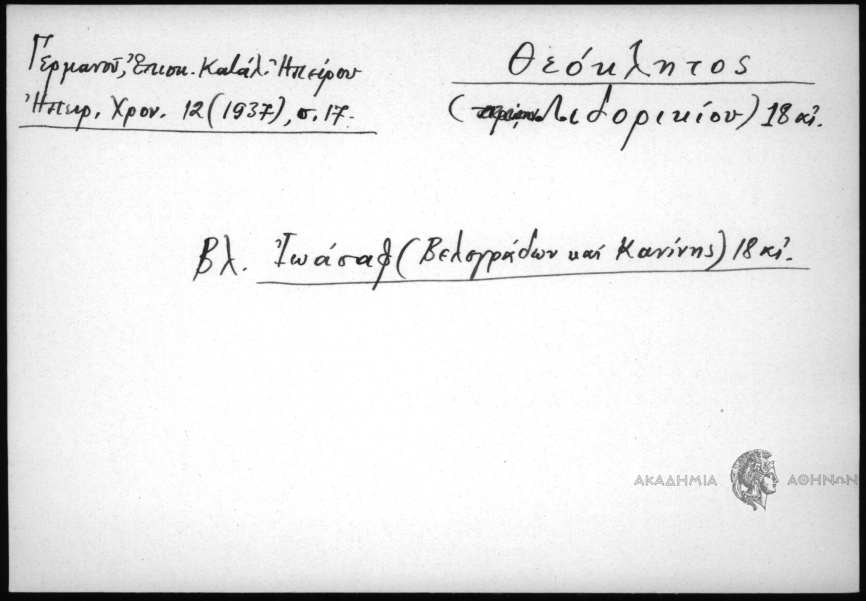 Γερμανοῦ, Ἐπισκ. Κατάλ. Ἠπείρου
Ἠπειρ. Χρον. 12 (1937), σ. 17.
Θεόκλητος
(Λιδορικίου) 18 αἰ.
Βλ. Ἰωάσαφ (Βελογράδων καὶ Κανίνης) 18 αἰ.
ΑΚΑΔΗΜΙΑ ΑΘΗΝΩΝ